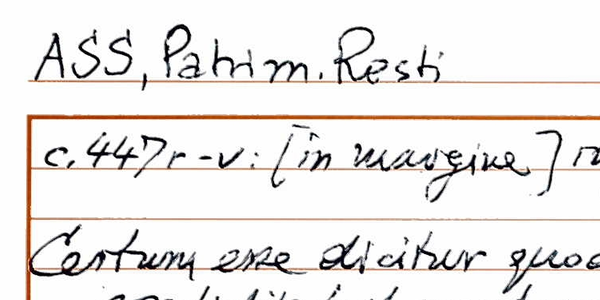 ASS, Patrim. Resti
c. 447r-v: [in margine]
Certum esse dicitur quod